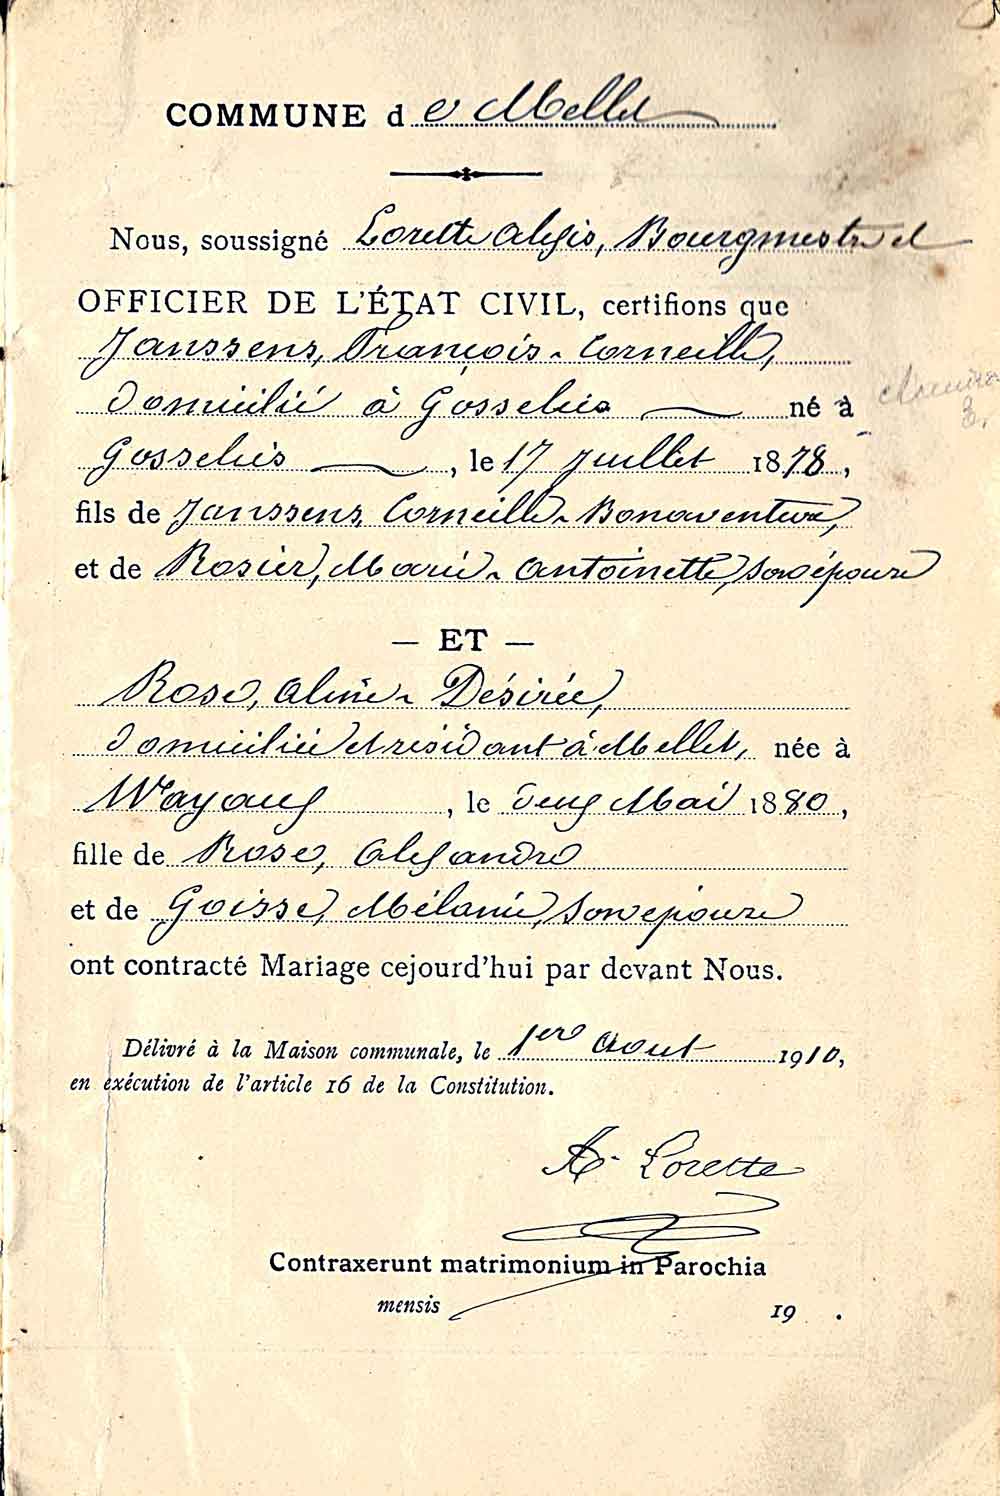 COMMUNE de Mellet
Nous, soussigné Lorette Alexis, Bourgmestre et
OFFICIER DE L'ÉTAT CIVIL, certifions que
Janssens, François-Corneille,
domicilié à Gosselies né à
Gosselies, le 17 Juillet 1878,
fils de Janssens Corneille-Bonaventure,
et de Rosier, Marie-Antoinette, son épouse
— ET —
Rose, Aline-Désirée,
domiciliée et résidant à Mellet, née à
Wayaux, le deux Mai 1880,
fille de Rose, Alexandre
et de Goisse, Mélanie, son épouse
ont contracté Mariage cejourd'hui par devant Nous.
Délivré à la Maison communale, le 1er Aout 1910,
en exécution de l'article 16 de la Constitution.
A. Lorette
Contraxerunt matrimonium in Parochia
mensis 19 .